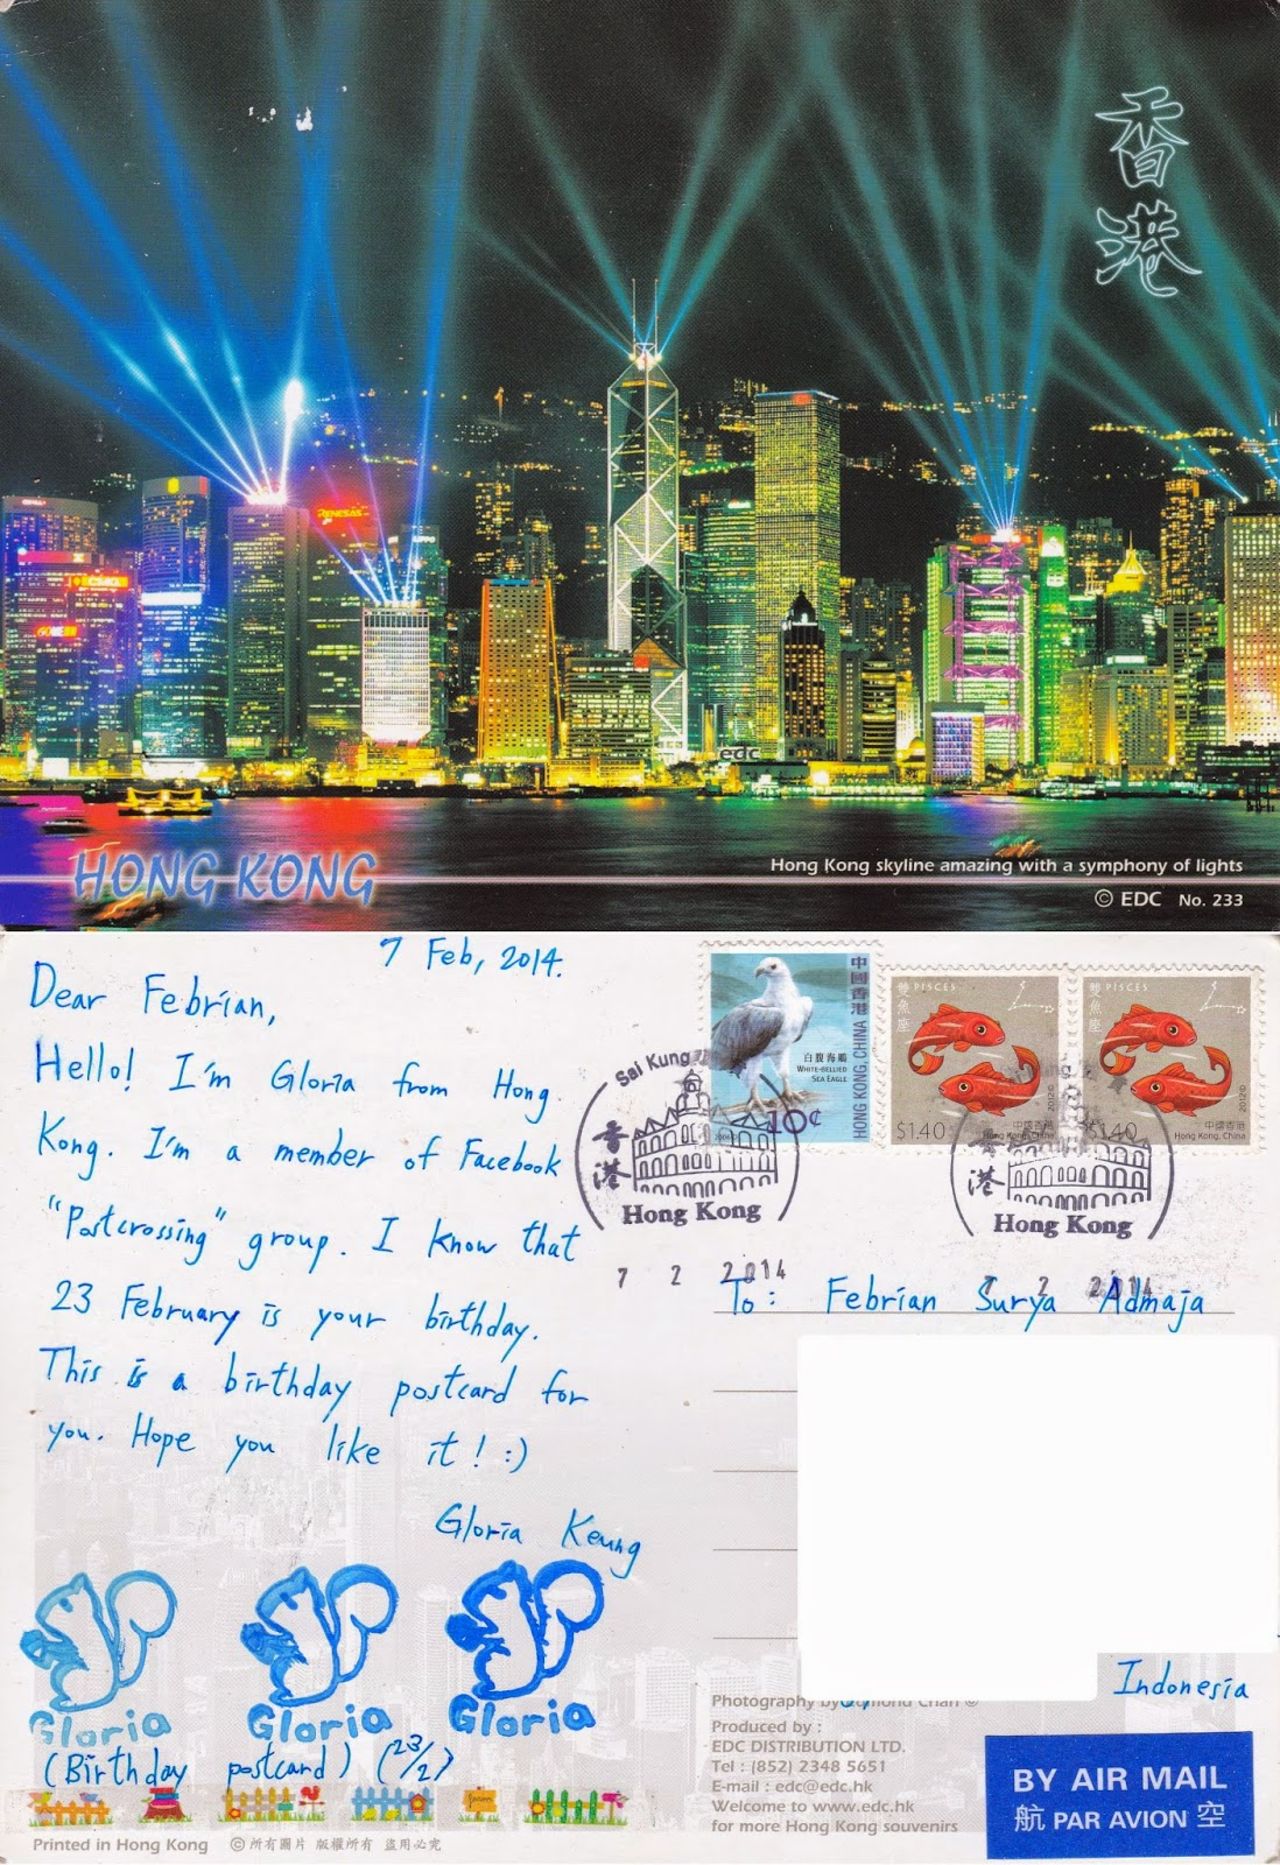 香港
RENESAS
edc
HONG KONG
Hong Kong skyline amazing with a symphony of lights
© EDC No. 233
7 Feb, 2014.
Dear Febrian,
Hello! I'm Gloria from Hong
Kong. I'm a member of Facebook
"Postcrossing" group. I know that
23 February is your birthday.
This is a birthday postcard for
you. Hope you like it! :)
Gloria Keung
Gloria
Gloria
Gloria
(Birthday postcard) (23/2)
Printed in Hong Kong © 所有圖片 版權所有 盜用必究
中國香港
HONG KONG, CHINA
白腹海鵰
WHITE-BELLIED
SEA EAGLE
10¢
雙魚座 PISCES
$1.40
中國香港
Hong Kong, China
2012©
雙魚座 PISCES
$1.40
中國香港
Hong Kong, China
2012©
Sai Kung
香港
Hong Kong
7 2 2014
香港
Hong Kong
7 2 2014
To: Febrian Surya Admaja
Indonesia
Photography by Edmond Chan ©
Produced by :
EDC DISTRIBUTION LTD.
Tel : (852) 2348 5651
E-mail : edc@edc.hk
Welcome to www.edc.hk
for more Hong Kong souvenirs
BY AIR MAIL
航 PAR AVION 空